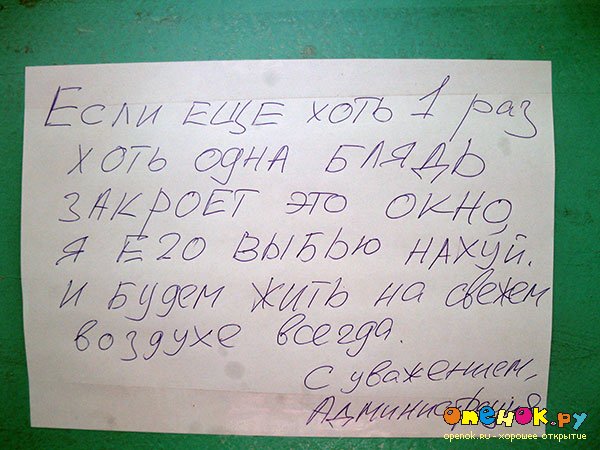 Если еще хоть 1 раз
хоть одна блядь
закроет это окно,
я его выбью нахуй.
и будем жить на свежем
воздухе всегда.
С уважением,
Администрация
опёнок.ру
openok.ru - хорошее открытие